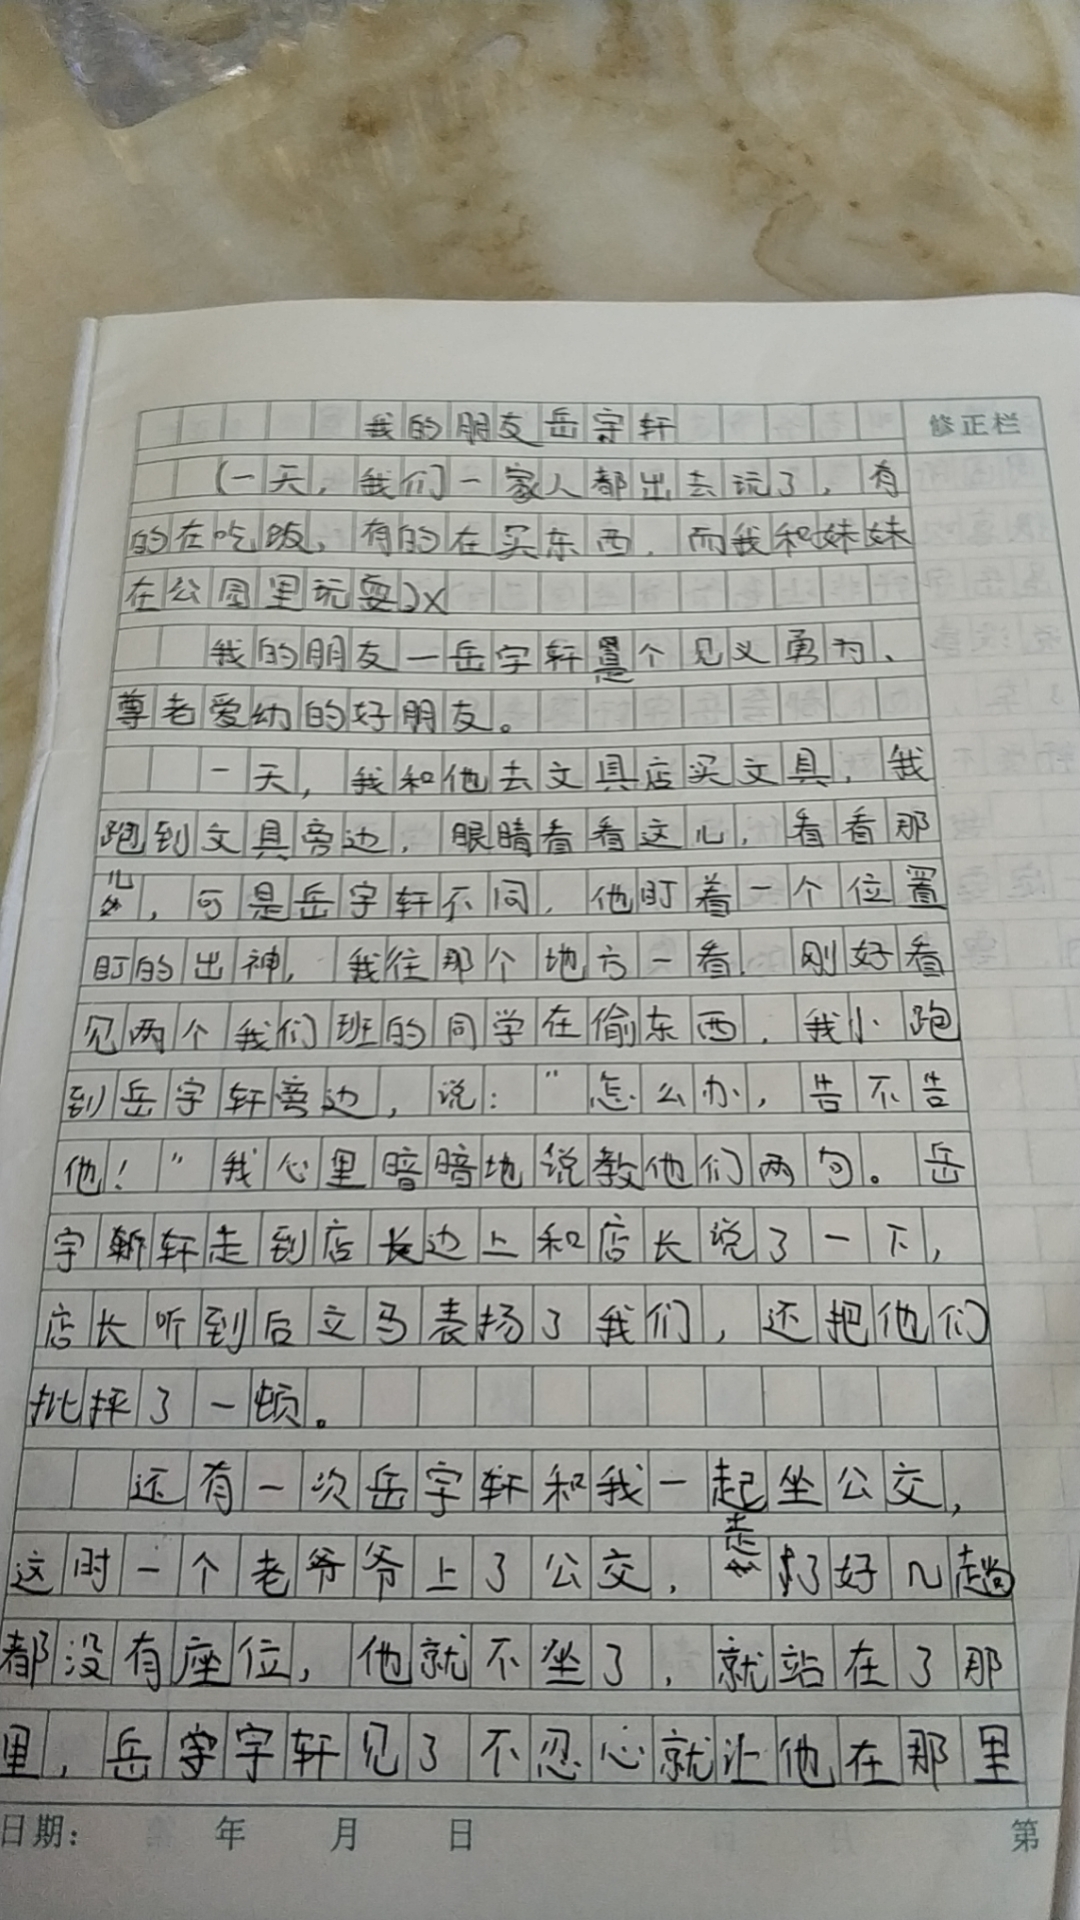 我的朋友岳宇轩
修正栏
(一天，我们一家人都出去玩了，有
的在吃饭，有的在买东西，而我和妹妹
在公园里玩耍)X
我的朋友一岳宇轩是个见义勇为、
尊老爱幼的好朋友。
一天，我和他去文具店买文具，我
跑到文具旁边，眼睛看看这儿，看看那
儿，可是岳宇轩不同，他盯着一个位置
盯的出神，我往那个地方一看，刚好看
见两个我们班的同学在偷东西，我小跑
到岳宇轩旁边，说：“怎么办，告不告
他！”我心里暗暗地说教他们两句。岳
宇轩走到店长边上和店长说了一下，
店长听到后立马表扬了我们，还把他们
批抨了一顿。
还有一次岳宇轩和我一起坐公交，
这时一个老爷爷上了公交，走了好几趟
都没有座位，他就不坐了，就站在了那
里，岳宇轩见了不忍心就让他在那里
日期： 年 月 日 第